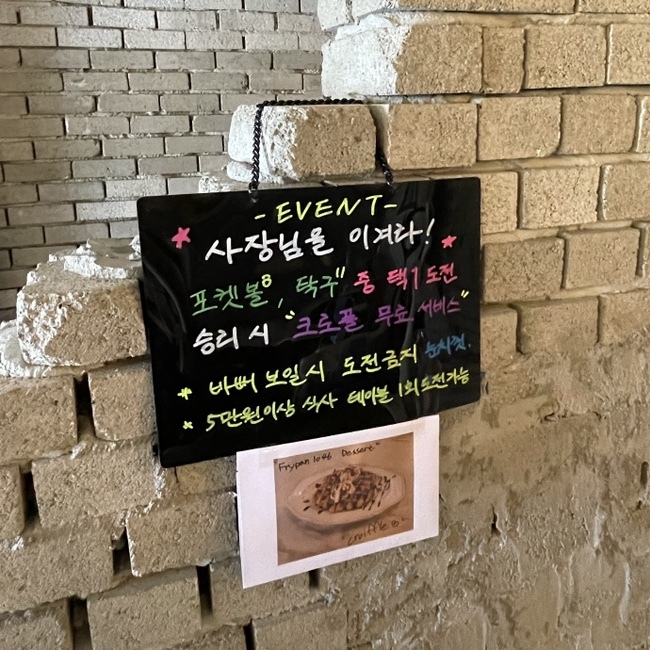 -EVENT-
사장님을 이겨라!
포켓볼8, 탁구" 중 택1 도전
승리 시 "크로플 무료 서비스"
* 바빠 보일시 도전금지 눈치껏.
* 5만원이상 식사 테이블 1회 도전가능
"Frypan 1046 Dessert"
"croiffle"